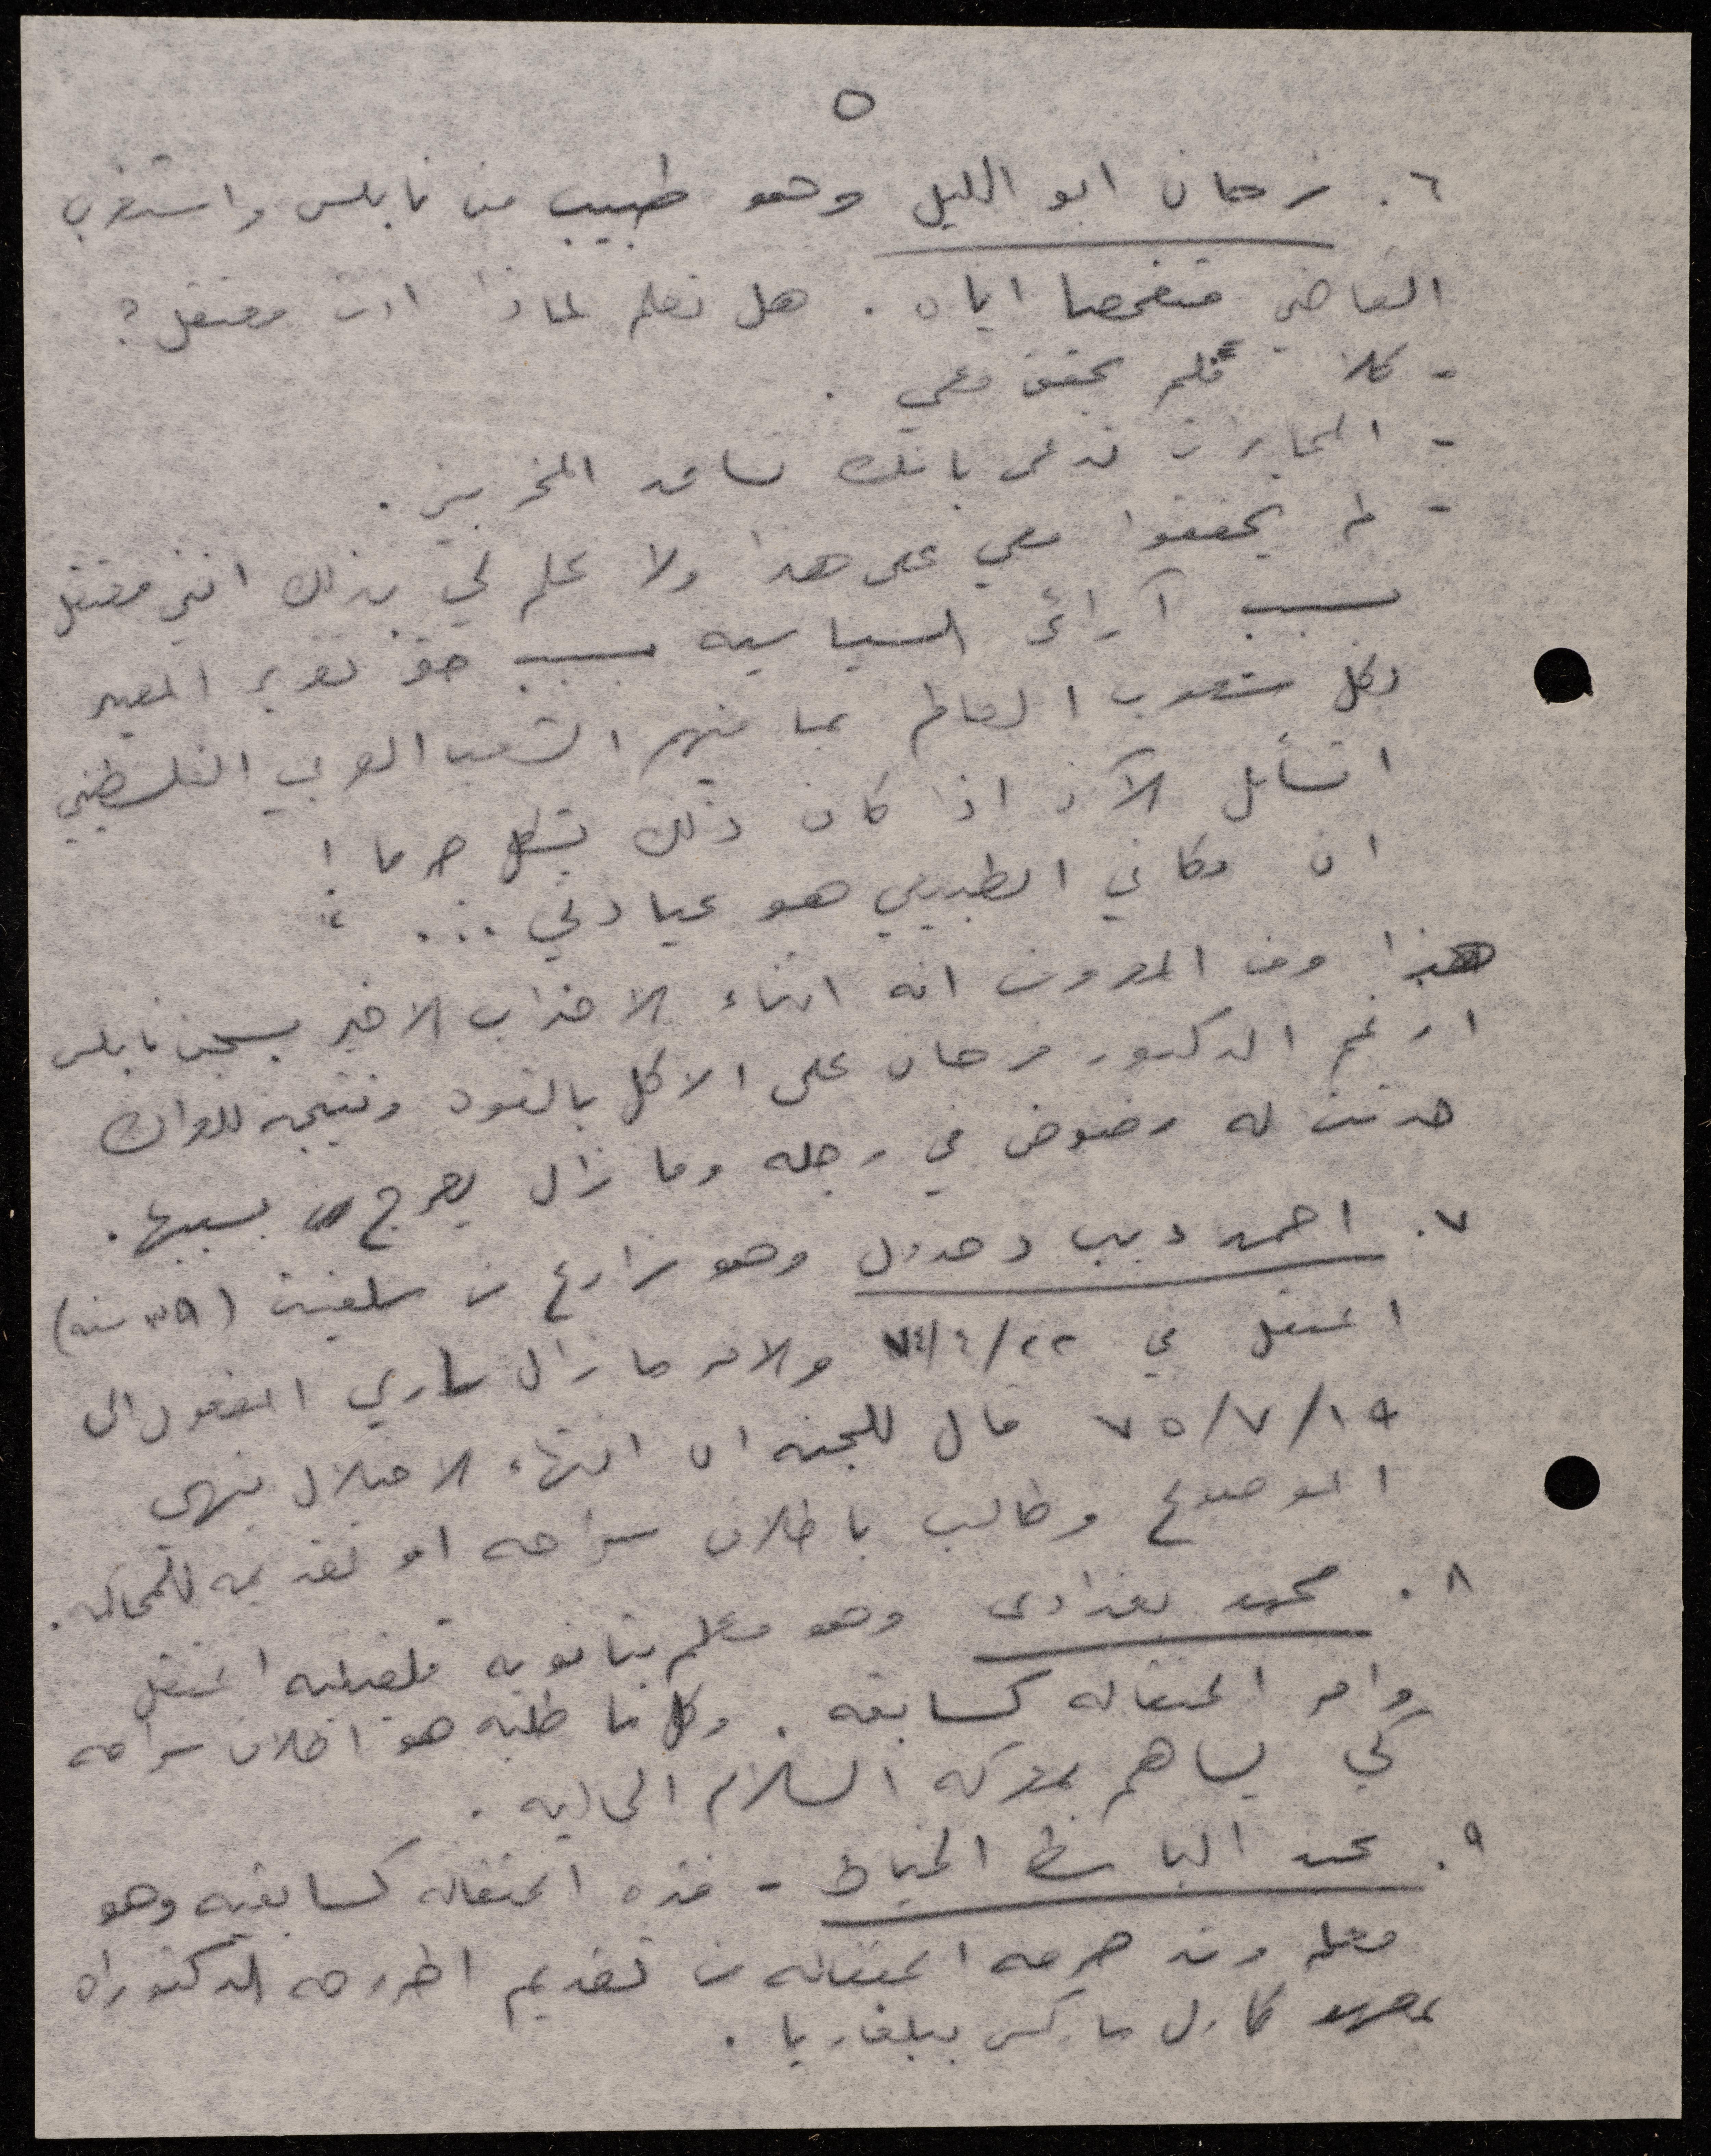 ٥
٦. فرحان ابو الليل وهو طبيب من نابلس واستغرب
القاضي متفحصا اياه . هل تعلم لماذا انت معتقل ؟
- كلا فلم يحقق معي .
- المخابرات تدعى بانك تساعد المخربين .
- لم يحققوا معي على هذا ولا علم لي بذلك انني معتقل
بسبب آرائي السياسيه بسبب حق تقرير المصير
لكل شعوب العالم بما فيهم الشعب العربي الفلسطيني
اتسأل الآن اذا كان ذلك يشكل جرما !
ان مكاني الطبيعي هو عيادتي ...
هذا ومن المعروف انه اثناء الاضراب الاخير بسجن نابلس
ارغم الدكتور فرحان على الاكل بالقوه ونتيجه للعراك
حدثت له رضوض في رجله وما زال يعرج بسببها .
٧. احمد ديب دحدول وهو مزارع من سلفيت (٣٩ سنه)
اعتقل في ٢٢/٤/٧٤ والامر ما زال ساري المفعول الى
١٩/٧/٧٥ قال للجنه ان انتهاء الاحتلال ينهي
الموضوع وطالب باطلاق سراحه او تقديمه للمحاكمه .
٨. محمد بغدادى وهو معلم بثانويه قلقيليه اعتقل
وامر اعتقاله كسابقه . وكل ما طلبه هو اطلاق سراحه
كي يساهم بمعركه السلام الحاليه .
٩. عبد الباسط الخياط - مده اعتقاله كسابقيه وهو
معلم وقد حرمه اعتقاله من تقديم اطروحه الدكتوراه
بمعهد كارل ماركس ببلغاريا .